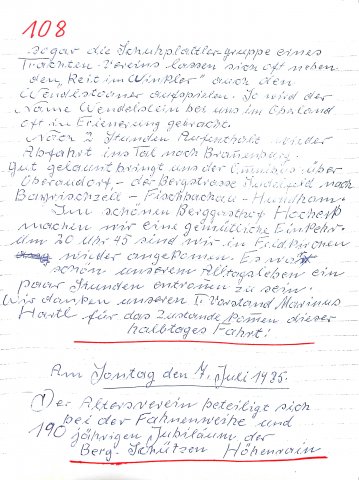 108
sogar die Schuhplattlergruppe eines
Trachten-Vereins lassen sich oft neben
den „Reit im Winkler" auch den
Wendelstoaner aufspielen. So wird der
Name Wendelstein bei uns im Oberland
oft in Erienerung gebracht.
Nach 2 Stunden Aufenthalt wieder
Abfahrt ins Tal nach Branenburg.
Gut gelaunt bringt uns der Omnibus über
Oberaudorf - der Bergstrasse nach
Bayrischzell - Fischbachau - Hundham.
Im schönen Berggasthof
machen wir eine gemütliche Einkehr.
Um 20 Uhr 45 sind wir in Feldkirchen
wieder angekomen. Es war
schön unserem Alltagsleben ein
paar Stunden entronen zu sein.
Wir danken unseren I. Vorstand Marinus
Hartl für das Zustande komen dieser
halbtages Fahrt!
Am Sontag den 7. Juli 1985.
Der Altersverein beteiligt sich
bei der Fahnenweihe und
190 jährigen Jubiläum der
Berg-Schützen Höhenrain